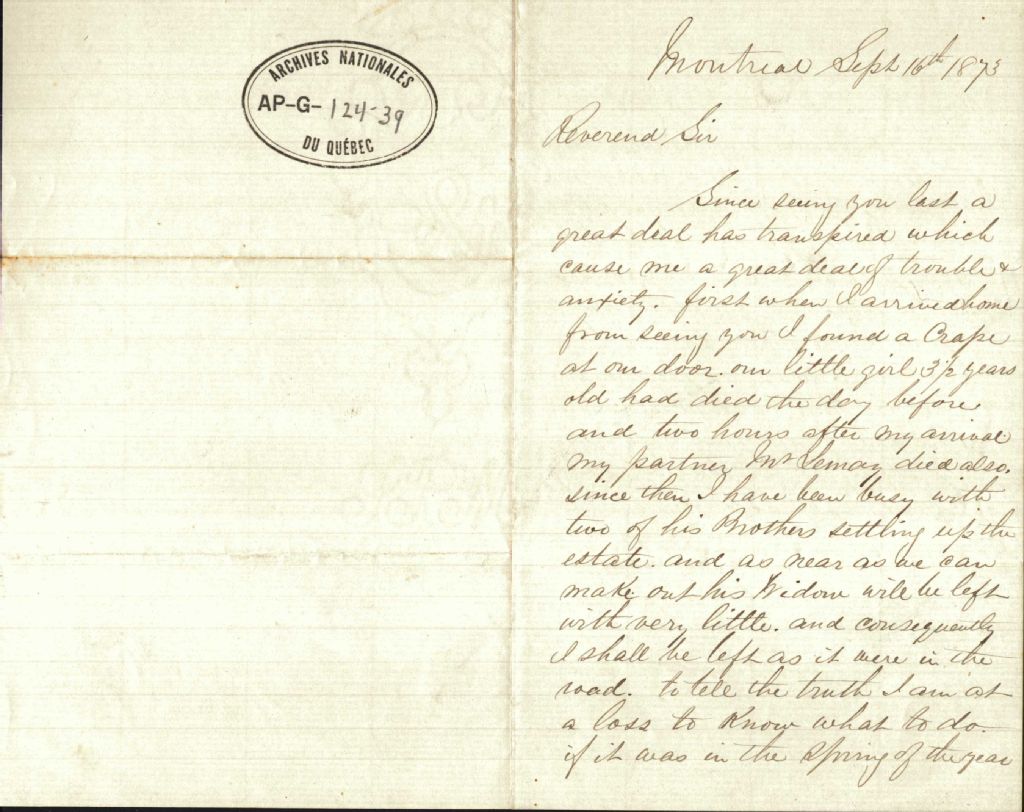 ARCHIVES NATIONALES
AP-G-124-39
DU QUÉBEC
Montreal Sept 16th 1873
Reverend Sir
Since seeing you last a
great deal has transpired which
cause me a great deal of trouble &
anxiety. first when I arrived home
from seeing you I found a Crape
at our door. our little girl 3 1/2 years
old had died the day before
and two hours after my arrival
my partner Mr Lemay died also.
since then I have been busy with
two of his Brothers settling up the
estate. and as near as we can
make out his Widow will be left
with very little. and consequently
I shall be left as it were in the
road. to tell the truth I am at
a loss to Know what to do.
if it was in the Spring of the year